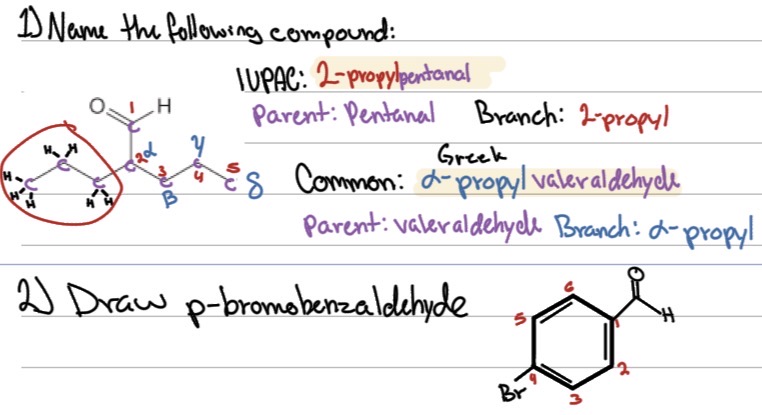 1) Name the following compound:
IUPAC: 2-propylpentanal
Parent: Pentanal Branch: 2-propyl
O C 1 H
H H C H H H C H H C 2 α C 3 β C 4 γ C 5 δ
Greek
Common: α-propyl valeraldehyde
Parent: valeraldehyde Branch: α-propyl
2) Draw p-bromobenzaldehyde
O H
Br 1 2 3 4 5 6